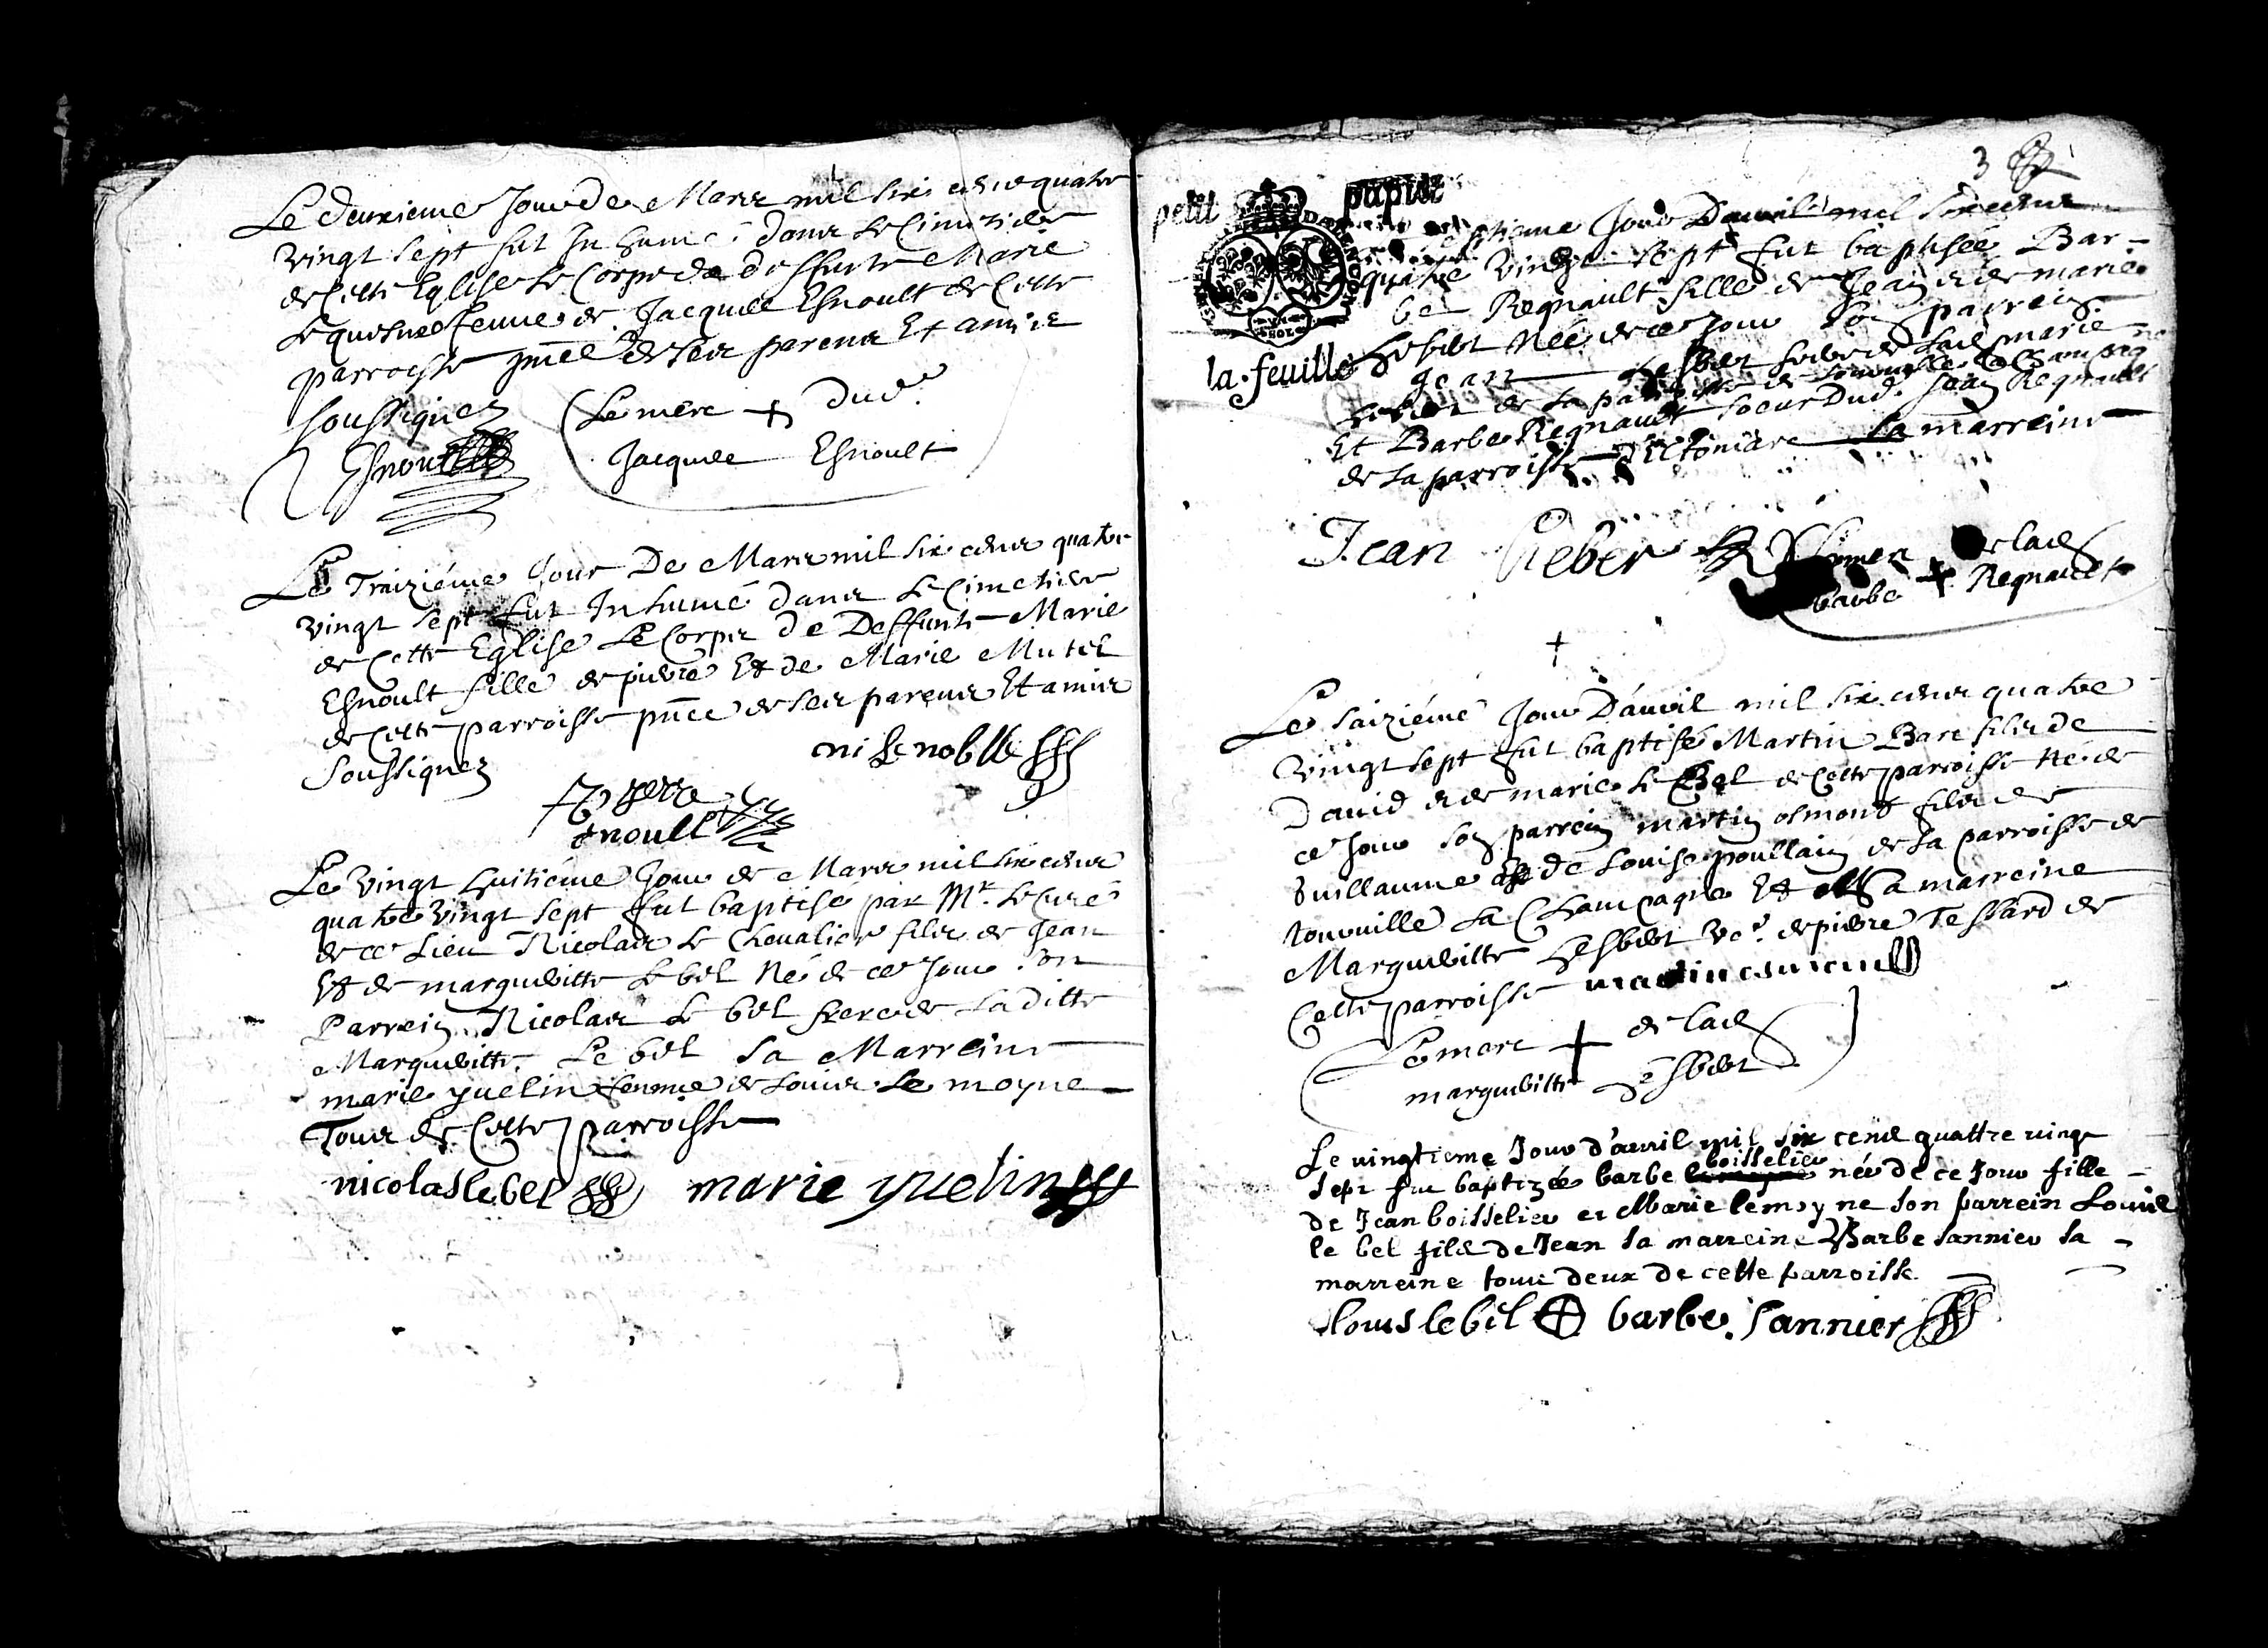 Le deuxieme Jour de Mars mil six cens quatre
vingt sept fut Inhumé dans Le Cimetiere
de Cette Eglise Le Corps de deffunte Marie
Lequesne femme de Jacques Esnoult de Cette
parroisse pñce de ses parens Et amis
soussignez (Le merc + dud.
Esnoult Jacques Esnoult
Le Traiziéme Jour De Mars mil six cens quatre
vingt sept fut Inhumé dans Le Cimetiere
de Cette Eglise Le Corps de Deffunte Marie
Esnoult fille de pierre Et de Marie Mutel
de Cette parroisse pñce de ses parens Et amis
Soussignez ni Le noble
enoult
Le vingt huitiéme Jour de Mars mil six cens
quatre vingt sept fut baptisé par Mr. Le Curé
de ce Lieu Nicolas Le Chevalier fils de Jean
Et de margueritte Le bel Né de ce Jour son
Parrein Nicolas Le bel frere de Laditte
Margueritte Le bel sa Marreine
marie yuelin femme de Louis Le moyne
Tous de Cette parroisse
nicolas le bel marie yuelin
3
petit papier
la feuille
Jour Dauril mil six cens
quatre vingt sept fut baptisée Bar-
be Regnault fille de Jean et de marie
hesbert Née de ce Jour son parrein
Jean hesbert de Lad. marie
de La parroisse de
Et Barbe Regnault soeur Dud. Jean Regnault
de La parroisse sa marreine
Jean heber Le merc de lad.
barbe + Regnault
+
Le saiziéme Jour Dáuril mil six cens quatre
vingt sept fut baptisé Martin Bare fils de
Dauid et de marie Le Bel de Cette parroisse Né de
ce Jour son parrein martin osmont fils de
Guillaume Et de Louise poullain de La parroisse de
touuille La Champagne Et sa marreine
Margueritte hesbert ve. de pierre Tessard de
Cette parroisse martin osmont
Le merc + de lad.
margueritte hesbert
Le uingtieme Jour d'auril mil six cens quattre uingt
boisselier
sept fut baptizée barbe née de ce Jour fille
de Jean boisselier et Marie lemoyne son parrein Louis
le bel fils de Jean sa marreine Barbe sannier sa
marreine tous deux de cette parroisse
louis le bel barbe sannier